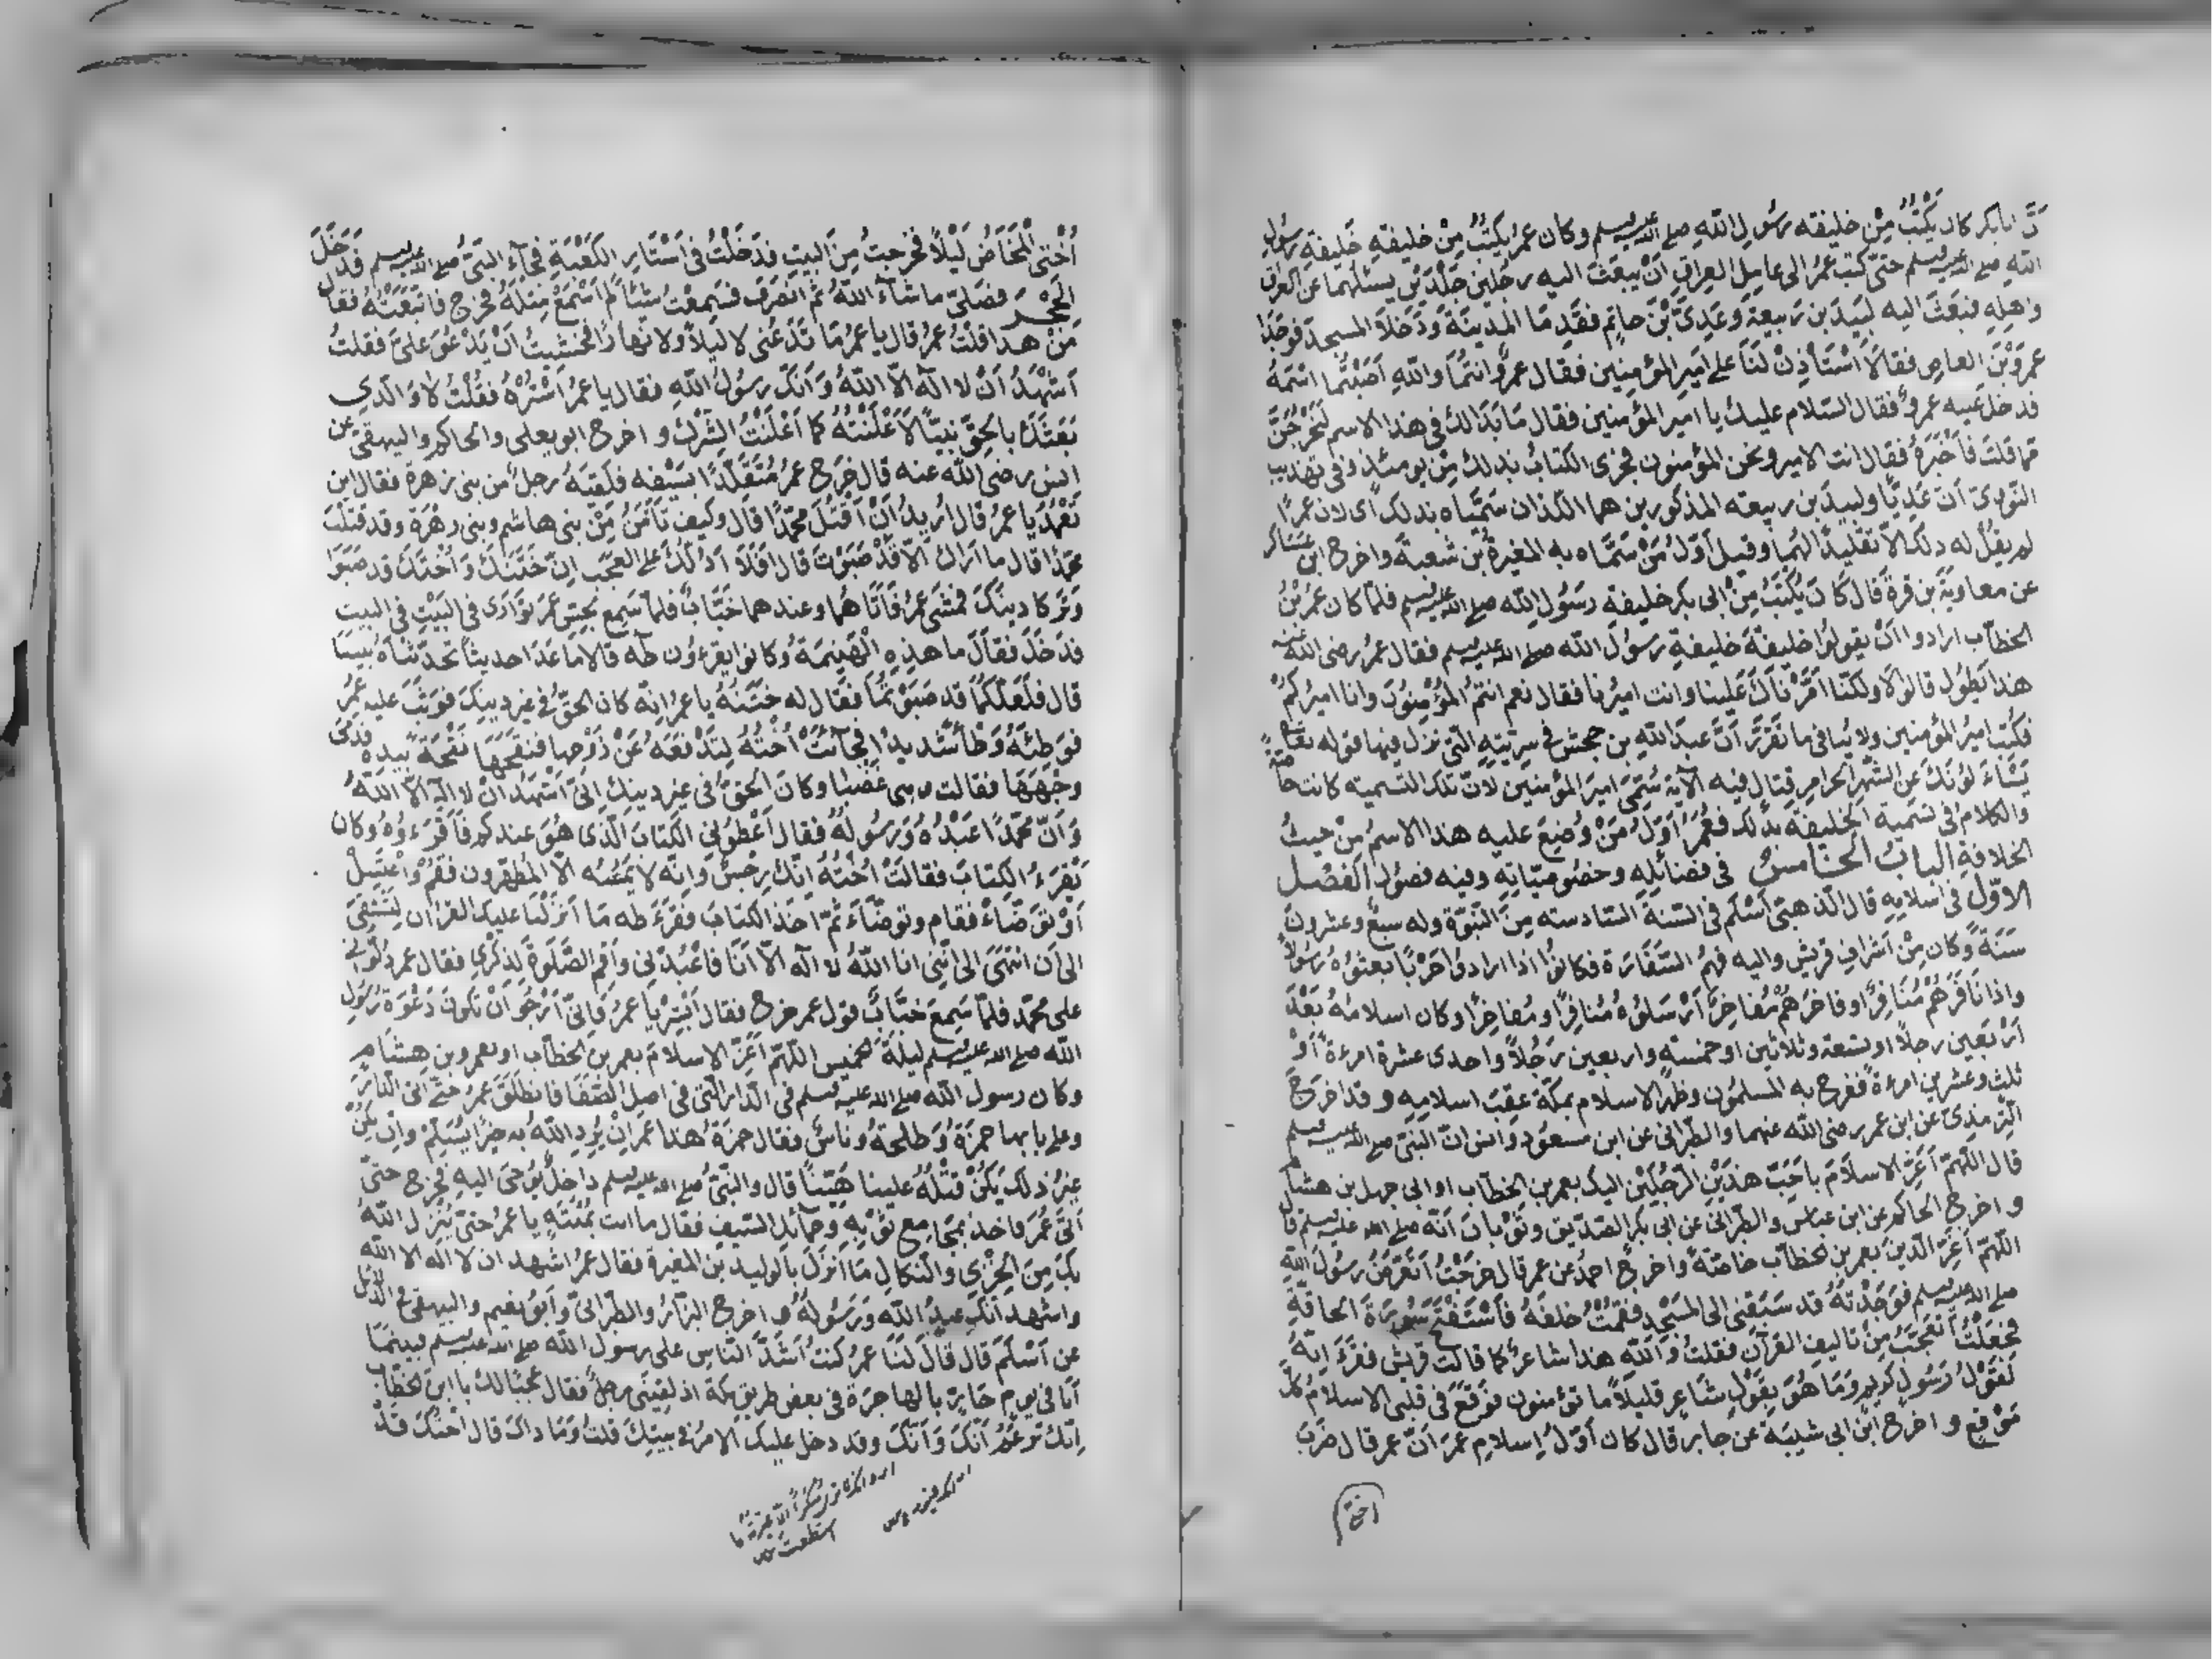 نَّ ابابكر كان يَكْتُبُ مِنْ خليفته رسُولِ اللّهِ صلى الله عليه وسلم وكان عمرُ يكتُبُ مِنْ خليفتهِ خَليفةِ رسُولِ
اللهِ صلى الله عليه وسلم حتى كتب عمرُ الى عامِلِ العِراقِ اَنْ يبعَثَ اليه رجُلينِ جَلْدَيْنِ يسئلهُما عن العراق
واهلِهِ فبَعَثَ اليه لبَيدَ بن رَبيعةَ وعَدِىَّ بْنَ حاتِمٍ فقَدِمَا المدينةَ وَدَخَلاَ المسجدَ فوجَدَا
عمرَوبْنَ العاصِ فقالاَ اسْتَأْذِنْ لَنَا على اميرِ المؤمنين فقال عمرٌو انتُمَا واللهِ اَصَبْتُما اسْمَهُ
فدخل عليه عمرٌو فقال السّلام عليك يا امير المؤمنين فقال مَا بَدَالك فى هذا الاسم لَتَخْرُجَنَّ
مما قلتَ فاَخْبَرَهُ فقال انت الامير ونحن المؤمنون فجرى الكتابُ بذلك مِنْ يومئذٍ وفى تهذيب
النّووىّ اَنّ عَدِيًّا ولبيدَ بن ربيعته المذكورين هما اللّذان سَمَّيَاه بذلك اى لان عمرًا
لم يقُلْ له ذلك الاّ تقليدًا لهُما وقيل اَوّلُ مَنْ سَمَّاه به المغيرةُ بن شعبةَ واخرج ابن عساكر
عن معاويَةَ بن قرةَ قال كَانَ يُكْتَبُ مِنْ ابى بكر خليفةِ رسُولِ الله صلى الله عليه وسلم فلمّا كان عمرُ بْنُ
الخطّاب ارادوا اَنْ يقولوُا خليفةَ خليفةِ رسُول الله صلى الله عليه وسلم فقال عمرُ رضى الله عنه
هذا يَطُولُ قالوا لاَ ولكنّا اَمَّرْنَاكَ عَلينا وانت اميرُنا فقال نعم انتمُ المُؤْمِنوُنَ وانا اميرُكمْ
فكُتِبَ اميرُ المؤمنين ولا يُنافى ما تَقَرَّرَ اَنَّ عبدَ اللهِ بن جحش فى سريَتِهِ الّتى نزل فيها قوله تعالى
يَسْئَلُونَكَ عَنِ الشّهْرِ الحرامِ قِتالٍ فيه الآية سُمِّىَ اميرَ المؤمنين لانّ تلك التسمية كانت خاصّةً
والكلامُ فى تسمية الخليفة بذلك فعُمَرُ اَوّلُ مَنْ وُضِعَ عليه هذا الاسمُ مِنْ حيثُ
الخلافةِ البابُ الخامسُ فى فضائلِه وخصُوصيّاتِهِ وفيه فصُول الفصْل
الاوّل فى اسْلامِهِ قال الذهبىّ اَسْلَم فى السّنةِ السّادسته مِنَ النّبوّة وله سبعٌ وعشرونَ
سَنَةً وكان مِنْ اَشْرافِ قريشٍ واليه فهمُ السَّفَارَة فكانوُا اذا ارادوُا حَرْبًا بعثوُه رسُولاً
واذا نَافَرَهُمْ مُنَافِرٌ او فاخَرَهُمْ مُفَاخِرٌ اَرْسَلُوهُ مُنافِرًا ومُفاخِرًا وكان اسلامُهُ بَعْدَ
اَرْبَعين رجلاً او تسعة وثلاثين او خمستهٍ واربعين رَجُلاً واحدى عشرةَ امرءةً اَوْ
ثلثٍ وعشرين امرءةً ففرح به المسلموُن وظهر الاسلام بمكّةَ عقبَ اسلامِهِ وقد اخرَجَ
التِّرمِذىّ عن ابن عمر رضى الله عنهما والطّبرانى عن ابن مسعوُدٍ وانس انّ النبىَّ صلى الله عليه وسلم
قال اللّهُمّ اَعِزَّ الاسلامَ باَحَبِّ هذَيْنِ الرّجُلَيْنِ اليك بعمر بن الخطّاب او ابى جهل بن هشام
واخرج الحاكم عن ابن عباس والطّبرانى عن ابى بكر الصّديق وثَوْبانَ اَنّه صلى الله عليه وسلم قال
اللّهُمّ اَعِزَّ الدّينَ بعمر بن الخطّاب خاصّةً واخرج احمدُ عن عمر قال خرَجْتُ اَتَعَرَّضُ رسُولَ اللّهِ
صلى الله عليه وسلم فوَجَدْتهُ قد سَبَقَنى الى المسْجدِ فقُمْتُ خلفَهُ فاَسْتَفْتَحَ سُورَةَ الحاقّةِ
فجعَلْتُ اَتَعَجَّبُ مِنْ تاليفِ القرآنِ فقلتُ وَاللّهِ هذا شاعرٌ كما قالت قريش فقَرَءَ اِنّهُ
لَقَوْلُ رَسُولٍ كَريمٍ وَمَا هُوَ بِقَوْلِ شَاعِرٍ قليلاً ما تؤمنون فوقع فى قلبى الاسلامُ كلّ
مَوْقِعٍ واخرج ابنُ ابى شيبَة عن جابر قال كان اَوّلُ اِسلامِ عُمَرَ اَنّ عمر قال ضرَبَ
اختى
اُخْتى الْمَخَاضُ لَيْلاً فخرجتُ مِنَ البيتِ فدَخَلْتُ فى اَسْتَارِ الكَعْبَةِ فجآءَ النبىُّ صلى الله عليه وسلم فدَخَلَ
الحِجْرَ فصَلىّ ما شآءَ اللّهُ ثمّ انصَرَفَ فسَمِعْتُ شَيْئًا لم اَسْمَعْ مِثْلَهُ فخرج فاتّبَعْتُهُ فقال
مَنْ هذا قلتُ عمرُ قال يا عمرُ مَا تَدَعُنى لا ليلاً ولا نهارًا فخَشِيتُ اَنْ يَدْعُوَ علىَّ فقلتُ
اَشْهَدُ اَنْ لا اله الاّ اللّهُ وَاَنّكَ رسُولُ اللّهِ فقال يا عمرُ اُسْتُرْهُ فقُلْتُ لاَ وَالّذى
بَعَثَكَ بالحقِّ نبيًّا لاُعْلِنَنّهُ كما اَعْلَنْتُ الشّرْكَ واخرج ابو يعلى والحاكم والبيهقى عن
انس رضى اللّه عنه قال خرَج عمرُ مُتَقَلِّدًا بسَيْفه فلَقيَهُ رجلٌ من بنى زهرة فقال اين
تَعْمِدُ يا عمرُ قال اُريدُ اَنْ اَقْتُلَ محمّدًا قال وكيف تَأْمَنُ مِنْ بنى هاشم وبنى زهْرَةَ وقد قتلْتَ
محمّدًا قال ما اَراكَ الاّ قَدْ صَبَوْتَ قال اَفَلاَ اَدُلّكَ على العَجَب اِنّ خَتَنَكَ وَاُخْتَكَ قد صَبَوَا
وتَرَكا دينَكَ فمشَى عمرُ فاَتَاهُما وعندهما خَبّابٌ فلمّا سَمِعَ بحِسِّ عمرَ تَوَارَى فى البَيْتِ فى البيت
فدَخَلَ فقالَ ما هذِهِ الْهَيْنَمَةُ وكانوا يقرءُون طه قالا ما عَدَا حديثًا تحدّثْنَاهُ بَيننَا
قال فلَعَلّكُما قد صَبَوْتُما فقال له خَتَنُهُ يا عمرُ اِنْ كان الحقُّ فى غير دينِكَ فوَثَبَ عليه عُمرُ
فوَطِئَهُ وَطْأً شَديدًا فجَآئَتْ اُخْتُهُ لِتَدْفَعَهُ عَنْ زَوْجِها فنفَحَهَا نَفْحَةً بيَدِه فدَمّى
وجْهَهَا فقالت وهى غَضْبا وكانَ الحقُّ فى غير دينِكَ اِنّى اَشْهَدُ اَنْ لا اِله الاّ اللّهُ
وَاَنّ محمّدًا عَبْدُهُ وَرَسُولُهُ فقال اَعْطوُنى الكتابَ الّذى هُوَ عندكم فَاَقْرَءَوُهُ وكان
يَقرَءُ الكِتَابَ فقالَتْ اُخْتُهُ اِنّكَ رِجْسٌ وَاِنّه لا يَمَسُّه الاّ المُطَهّرون فقُمْ وَاغتَسِلْ
اَوْ تَوَضّأْ فقام وتوَضّأَ ثمّ اخَذَ الكتابَ فقَرَءَ طه مَا اَنزَلْنَا عليك القرانَ لِتَشْقَىَ
الى اَن انتهى الى اِنّنى انا اللّهُ لا اله الاّ اَنَا فَاعْبُدْنى واَقمِ الصّلوةَ لِذِكْرى فقال عمر دُلّوُنى
على محمّدٍ فلمّا سَمِعَ خبّابٌ قول عمر خرج فقال اَبْشِرْ يا عمرُ فَاِنّى اَرْجُو اَنْ تكونَ دَعْوَةَ رَسُولِ
اللّه صلى الله عليه وسلم ليلةَ الخميس اللّهُمّ اَعِزَّ الاسلامَ بعمر بن الخطّاب او بعمرو بن هِشَامٍ
وكان رسول اللّه صلى الله عليه وسلم فى الدّار الّتى فى اصل الصّفَا فانطَلَقَ عمرُ حتّى اتى الدّارَ
وعلى بابها حمزَةُ وَطلحةُ وناسٌ فقال حمزَةُ هذا عمرُ اِنْ يُرِدِ اللّهُ به خيرًا يُسْلِمْ واِن يكنْ
غيرُ ذلك يَكُنْ قَتْلُهُ علينا هَيّنًا قال والنّبىُّ صلى الله عليه وسلم داخلٌ يُوحَى اليهِ فخرج حتّى
اَتَى عُمَرَ فاخذَ بمَجَامِعِ ثَوْبِهِ وحمائلِ السّيف فقال ما انت بمُنْتَهٍ يا عمرُ حتّى يُنْزِلَ اللّهُ
بكَ مِنَ الخِزْىِ والنّكالِ مَا اَنزَلَ بالوليدِ بن المغيرة فقال عمرُ اشهد ان لا اله الا اللّه
واشهد انّك عبدُ اللّهِ وَرَسُولُهُ واخرج البزّارُ والطّبرانىّ وَابوُ نعَيم والبيهقى فى الدّلائل
عن اَسْلَمَ قال قالَ لنَا عمرُ كنتُ اَشَدَّ النّاسِ على رسول اللّه صلى الله عليه وسلم فبينمَا
اَنَا فى يومٍ حَارٍّ بالهاجرَةِ فى بعض طريق مكّةَ اذ لَقِيَنى رجلٌ فقال عجبًا لك يا ابن الخطّاب
اِنّك تزعُمُ اَنّكَ وَاَنّكَ وقد دخل عليك الامرُ فى بيتِكَ قلتُ وَمَا ذاكَ قال اختُكَ قَدْ